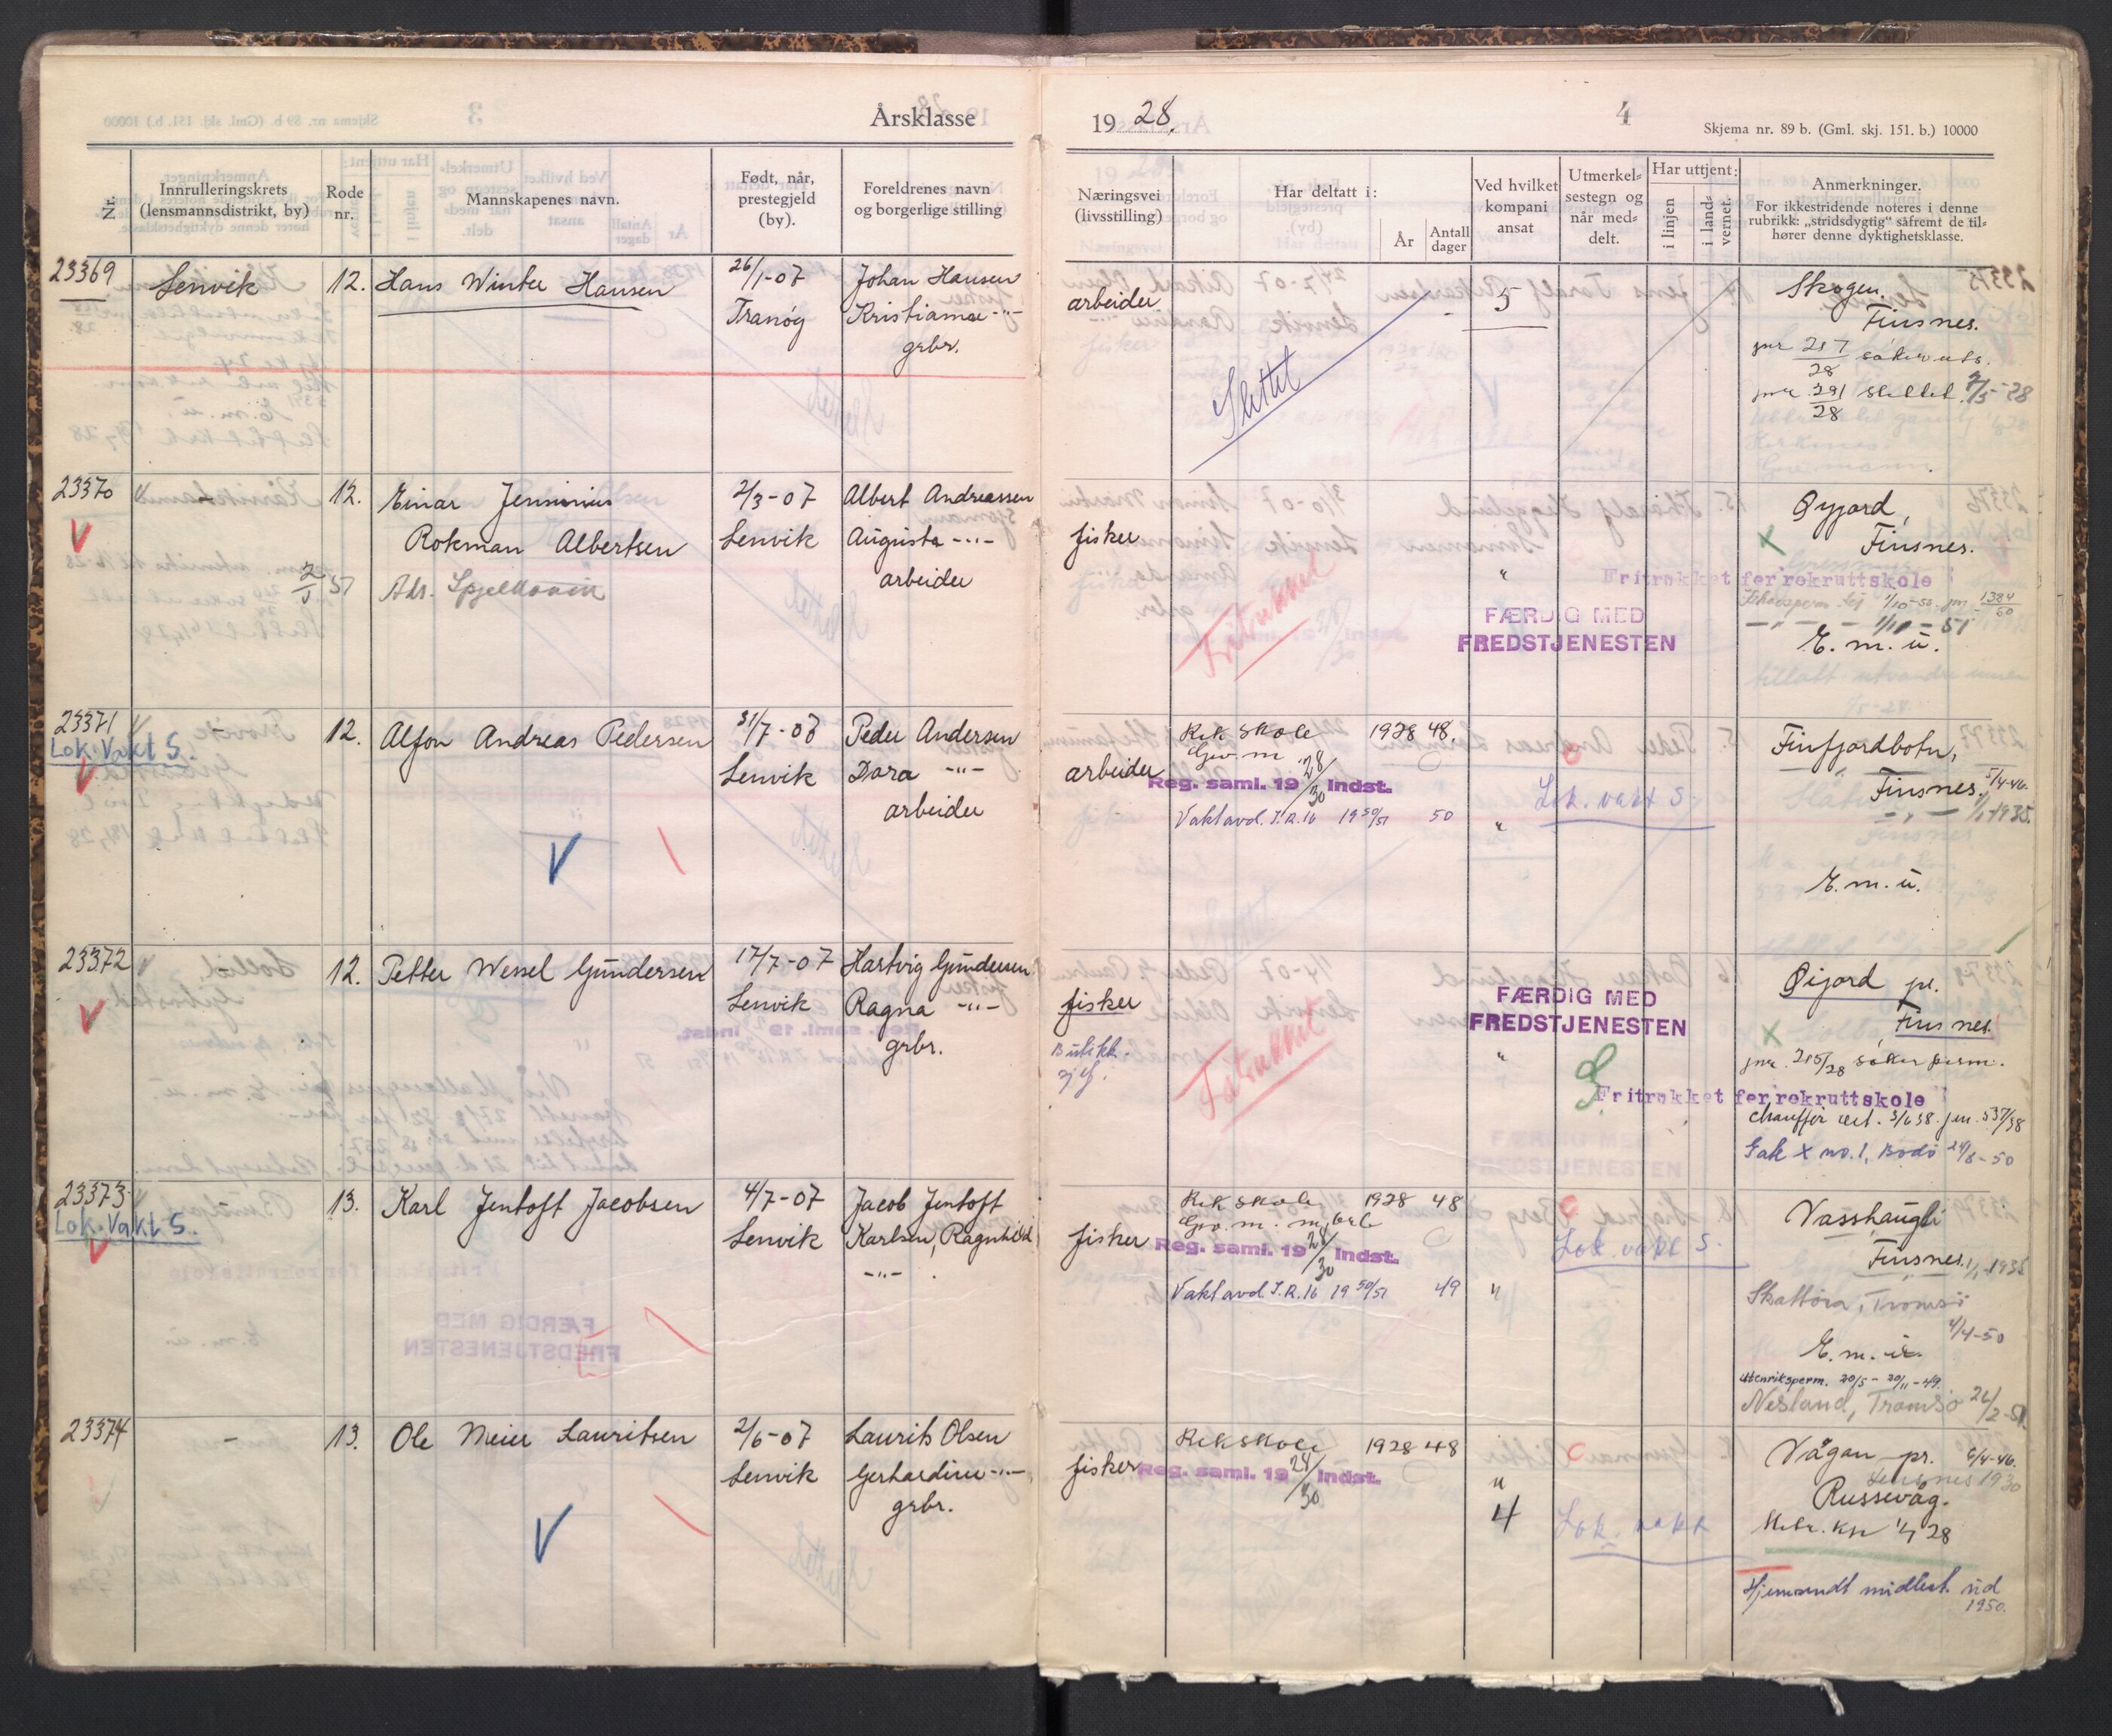 Årsklasse
1928.
4
Skjema nr. 89 b. (Gml. skj. 151. b.) 10000
Nr.
Innrulleringskrets
(lensmannsdistrikt, by)
Rode
nr.
Mannskapenes navn.
Født, når,
prestegjeld
(by).
Foreldrenes navn
og borgerlige stilling
Næringsvei
(livsstilling)
Har deltatt i:
År
Antall
dager
Ved hvilket
kompani
ansat
Utmerkel=
sestegn og
når med=
delt.
Har uttjent:
i linjen
i land=
vernet.
Anmerkninger.
For ikkestridende noteres i denne
rubrikk: „stridsdygtig" såfremt de til=
hører denne dyktighetsklasse.
23369
Lenvik
12.
Hans Winter Hansen
26/1-07
Tranøy
Johan Hansen
Kristiama -"-
grbr.
arbeider
Slettet
5
Skogen
Finsnes.
jnr 217/28 søker uts.
jnr 291/28 slettet 7/5-28
23370
V
-
12.
Einar Jensinius
Rokman Albertsen
Adr. Spjelkavik
2/3-07
Lenvik
Albert Andreassen
Augusta -"-
arbeider
fisker
Fritrukket
"
FÆRDIG MED
FREDSTJENESTEN
Øyjord,
Finsnes.
Fritrukket for rekruttskole
1/10-50 jnr 1384/50
1/11-51
E. m. u.
23371
Lok. Vakt S.
V
-
12.
Alfon Andreas Pedersen
V
31/7-07
Lenvik
Peder Andersen
Dora -"-
arbeider
arbeider
Rek skole 1928 48.
Gev. m
Reg. saml. 19 28/30 Indst.
Vaktavd. I.R.16 19 50/51 50
"
Lok. vakt S.
Finfjordbotn,
Finsnes. 5/4-46.
1/1-1935.
E. m. u.
23372
V
12.
Petter Wessel Gundersen
17/7-07
Lenvik
Hartvig Gundersen
Ragna -"-
grbr.
fisker
Butikk-
Fritrukket
FÆRDIG MED
FREDSTJENESTEN
"
Øijord pr.
Finsnes.
jnr. 215/28 søker perm.
Fritrukket for rekruttskole
Chauffør sert. 3/6 38. jnr. 537/38
Fak X no. 1, Bodø 24/8-50
23373
Lok. Vakt S.
V
13.
Karl Jentoft Jacobsen
4/7-07
Lenvik
Jacob Jentoft
Karlsen, Ragnhild
-"-
fisker
Rek skole 1928 48
Gev. m.
Reg. saml. 19 28/30 Indst.
Vaktavd. I.R.16 19 50/51 49
"
Lok vakt S.
Vasshaugli
Finsnes. 1/1-1935
Skattøra, Tromsø
4/4-50
E. m. u.
Utenriksperm. 20/5 - 20/11-49.
Nesland, Tromsø 26/2-51
23374
-
13.
Ole Meier Lauritsen
V
2/6-07
Lenvik
Laurits Olsen
Gerhardine -"-
grbr.
fisker
Rekskole 1928 48
Reg. saml. 19 28/30 Indst.
"
4
Lok. vakt
Vågan pr. 6/4-46.
Finsnes 1930
Russevåg.
28
Hjemsendt midlert. ud
1950.